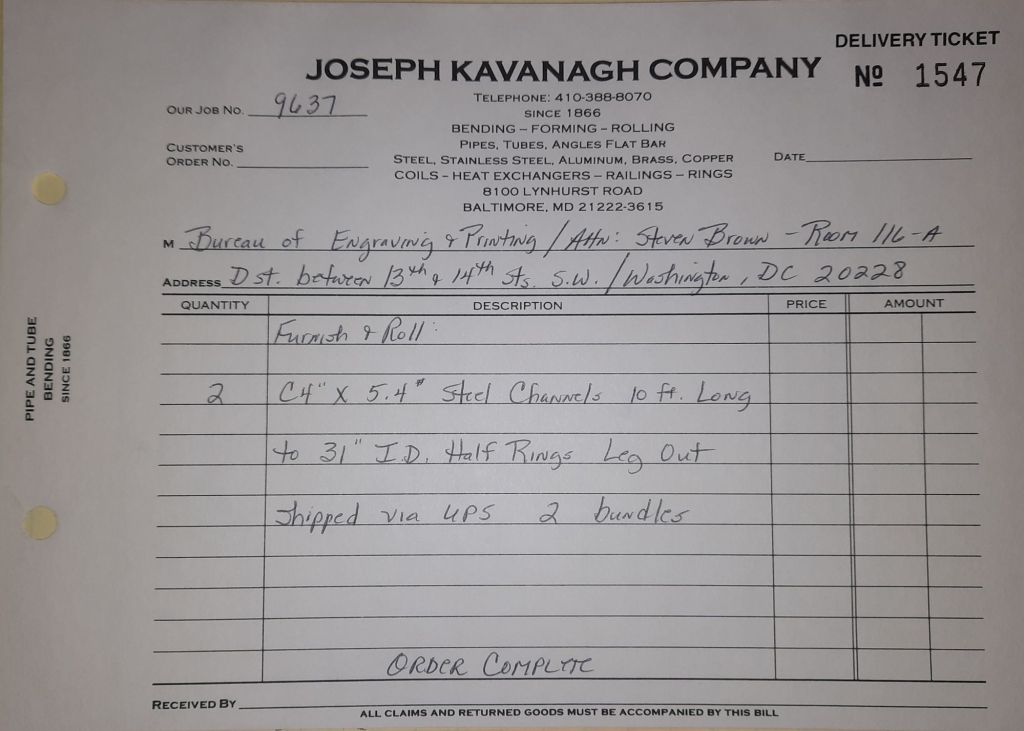 DELIVERY TICKET
JOSEPH KAVANAGH COMPANY
Nº 1547
TELEPHONE: 410-388-8070
OUR JOB NO. 9637
SINCE 1866
BENDING – FORMING – ROLLING
PIPES, TUBES, ANGLES FLAT BAR
CUSTOMER'S
ORDER NO.
STEEL, STAINLESS STEEL, ALUMINUM, BRASS, COPPER
DATE
COILS – HEAT EXCHANGERS – RAILINGS – RINGS
8100 LYNHURST ROAD
BALTIMORE, MD 21222-3615
M Bureau of Engraving & Printing / Attn: Steven Brown - Room 116-A
ADDRESS D St. between 13th & 14th Sts. S.W. / Washington, DC 20228
QUANTITY DESCRIPTION PRICE AMOUNT
Furnish & Roll:
2 C4" X 5.4# Steel Channels 10 ft. Long
to 31" I.D. Half Rings Leg Out
Shipped via UPS 2 bundles
ORDER COMPLETE
RECEIVED BY
ALL CLAIMS AND RETURNED GOODS MUST BE ACCOMPANIED BY THIS BILL
PIPE AND TUBE
BENDING
SINCE 1866